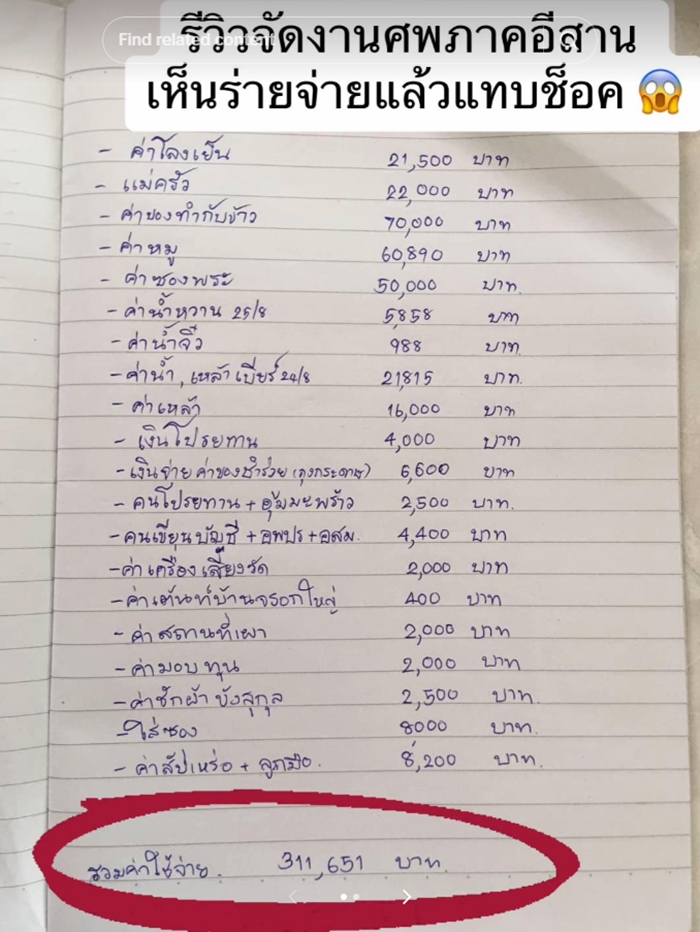 Find related content
รีวิวจัดงานศพภาคอีสาน
เห็นร่ายจ่ายแล้วแทบช็อค 😱
- ค่าโลงเย็น 21,500 บาท
- แม่ครัว 22,000 บาท
- ค่าของทำกับข้าว 70,000 บาท
- ค่าหมู 60,890 บาท
- ค่าซองพระ 50,000 บาท.
- ค่าน้ำหวาน 25/8 5,858 บาท
- ค่าน้ำจิ้ว 988 บาท.
- ค่าน้ำ, เหล้า เบียร์ 24/8 21,815 บาท.
- ค่าเหล้า 16,000 บาท
- เงินโปรยทาน 4,000 บาท
- เงินจ่ายค่าของชำร่วย (ถุงกระดาษ) 6,600 บาท
- คนโปรยทาน + อุ้มมะพร้าว 2,500 บาท.
- คนเขียนบัญชี + อพปร + อสม. 4,400 บาท
- ค่าเครื่องเสียงวัด 2,000 บาท
- ค่าเต้นท์บ้านจรอกใหญ่ 400 บาท
- ค่าสถานที่เผา 2,000 บาท
- ค่ามอบทุน 2,000 บาท
- ค่าชักผ้าบังสุกุล 2,500 บาท.
- ใส่ซอง 8000 บาท.
- ค่าสัปเหร่อ + ลูกมือ. 8,200 บาท.
รวมค่าใช้จ่าย. 311,651 บาท